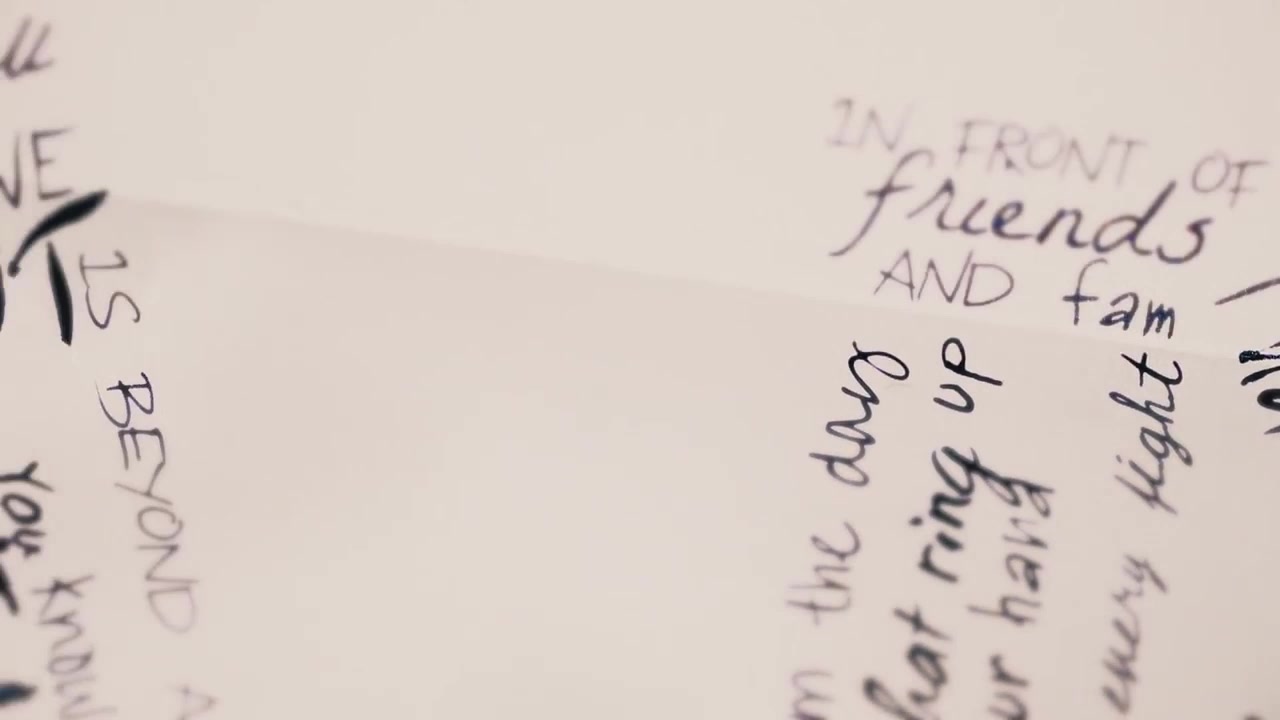 IN FRONT OF
friends
AND fam
the day
hat ring up
ur hand
every fight
IS BEYOND A
You know